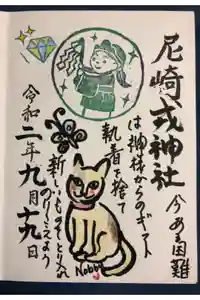 尼崎戎神社
今ある困難
は神様からのギフト
執着を捨て
新しいものをとり入れ
のりこえよう
令和二年九月十九日
Nobby